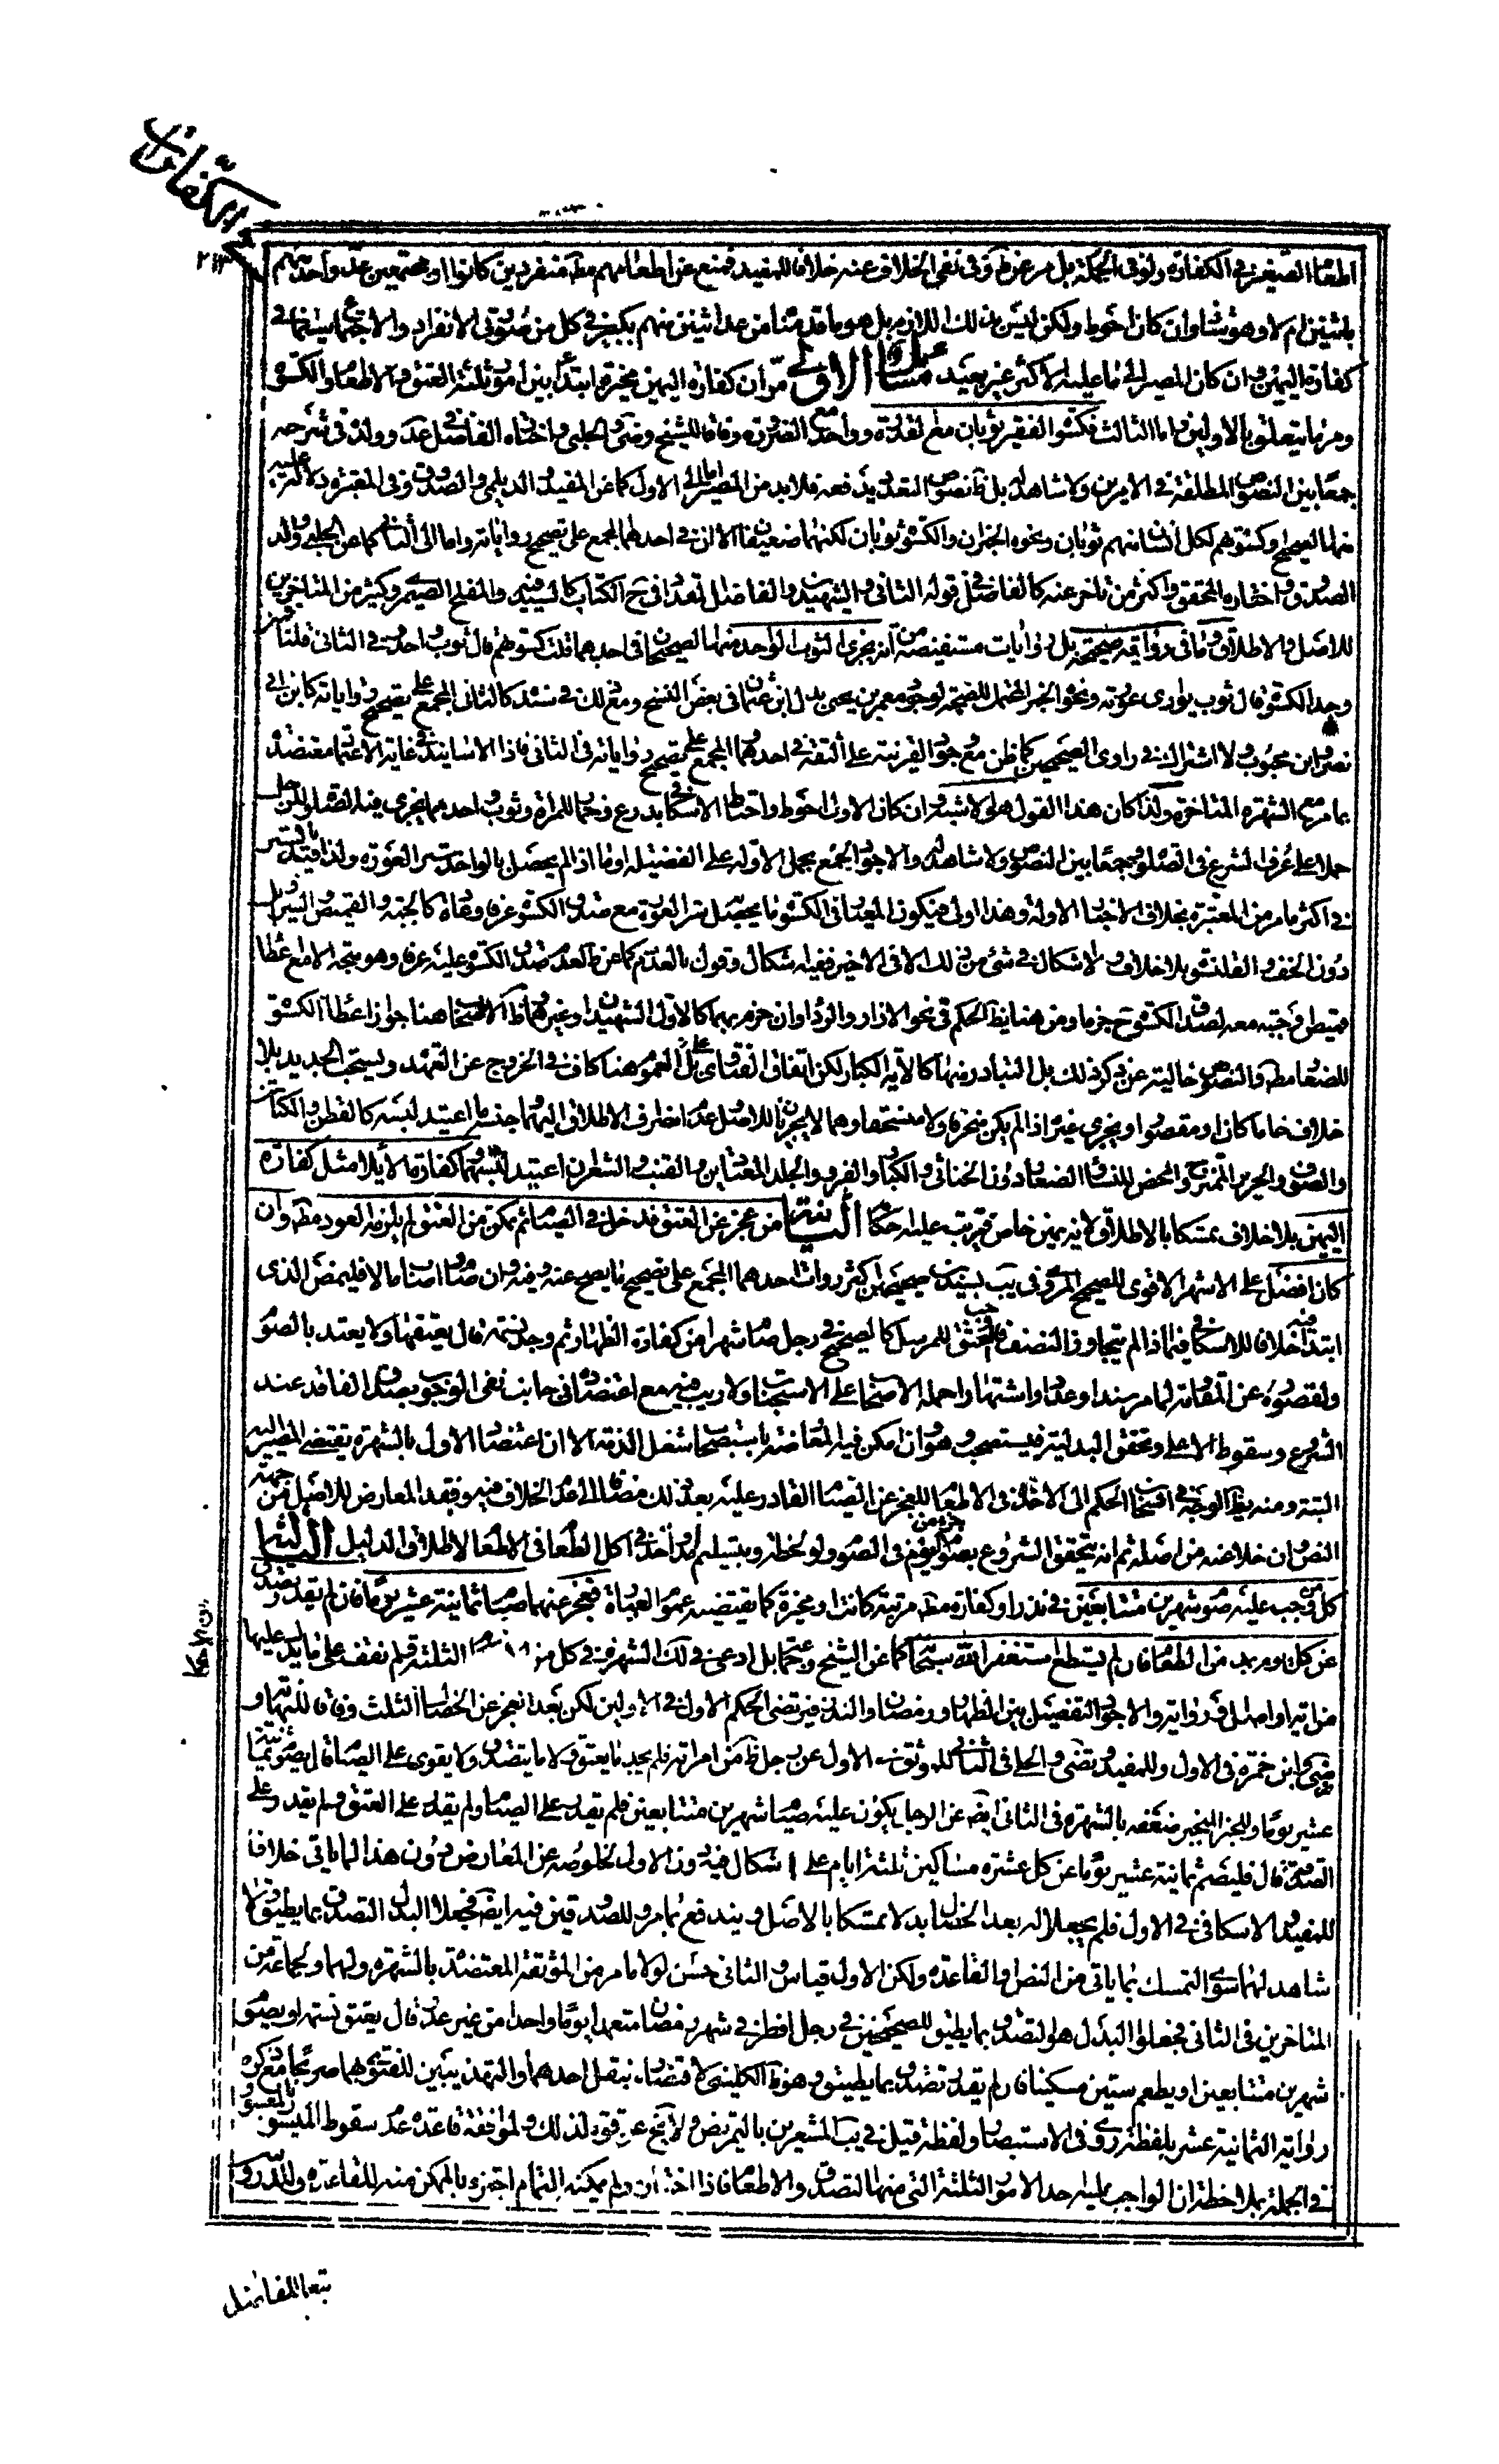 الكفارات
٢١٣
اطعام الصغير في الكفارة ولو في الجملة بل مر عن ظ وفي نفي الخلاف عنه خلافا للمفيد فمنع عن اطعامهم مط منفردين كانوا او مجتمعين عد واحد منهم
باثنين ام لا وهو شاذ وان كان احوط ولكن ليس بذلك اللازم بل هو ما قدمنا من عد اثنين منهم بكبير في كل من صورتي الانفراد والاجتماع سيما في
كفارة اليمين وان كان المصير الى ما عليه الاكثر غير بعيد مسائل الاولى مر ان كفارة اليمين مخيرة ابتداء بين امور ثلثة العتق والاطعام والكسوة
ومر ما يتعلق بالاولين واما الثالث فكسوة الفقير ثوبان مع القدرة وواحد مع الضرورة وفاقا للشيخ وضى والحلبى واختاره الفاضل في عد وولده في شرحه
جمعا بين النصوص المطلقة في الامرين ولا شاهد له بل ظ نصوص التعدد يدفعه فلابد من المصير اما الى الاول كما عن المفيد والديلمى والصدوق وفي المعتبرة دلالة عليه
منها الصحيح او كسوتهم لكل انسان منهم ثوبان ونحوه الخبران والكسوة ثوبان لكنهما ضعيفا الا ان في احدهما المجمع على تصحيح رواياته واما الى الثانى كما عن الحلى ووالد
الصدوق واختاره المحقق واكثر من تاخر عنه كالفاضل في قوله الثانى والشهيدين والفاضل المقداد في ح الكتاب كالسيد والمفلح الصيمرى وكثير من المتاخرين
للاصل والاطلاق وما في رواية صحيحة بل روايات مستفيضة من انه يجزى الثوب الواحد منها الصحيحان في احدهما قلت كسوتهم قال ثوب واحد وفي الثانى قلنا فمن
وجد الكسوة قال ثوب يوارى عورته ونحو الخبر المحتمل للصحة لوجود معمر بن يحيى بدل ابن عثمان في بعض النسخ ومع ذلك في سنده كالثانى المجمع على تصحيح رواياته كابن ابى
نصر وابن محبوب ولا اشتراك في راوى الصحيحين كما ظن مع وجود القرينة على الثقة في احدهما والمجمع على تصحيح رواياته في الثانى فاذا الاسانيد في غاية الاعتماد معتضدة
بما مر مع الشهرة المتاخرة ولذا كان هذا القول هو الاشبه وان كان الاول احوط واحتاط الاسكافى بدرع وخمار للمرأة وثوب واحد مما يجزى فيه الصلوة للرجل
حملا على عرف الشرع في الصلوة جمعا بين النصوص ولا شاهد له والاجود الجمع بحمل الاولة على الفضيلة او ما اذا لم يحصل بالواحد ستر العورة ولذا قيد بالستر
في اكثر ما مر من المعتبرة بخلاف الاخبار الاولة وهذا اولى فيكون المعيار في الكسوة ما يحصل ستر العورة مع صدق الكسوة عرفا وفاقا كالجبة والقميص والسراويل
دون الخف والقلنسوة بلا خلاف ولا اشكال في شئ من ذلك الا في الاخير ففيه اشكال وقول بالعدم كما عن ط لعدم صدق الكسوة عليه عرفا وهو متجه الا مع اعطاء
قميص او جبة معه لصدق الكسوة ح جزما ومن هنا يظ الحكم في نحو الازار والرداء وان جزم بهما كالاول الشهيدان وغيرهما ظ الاصحاب هنا جواز اعطاء الكسوة
للصغار مط والنصوص خالية عن ذكر ذلك بل المتبادر منها كالآية الكبار لكن اتفاق الفتاوى على العموم هنا كاف في الخروج عن العهدة ويستحب الجديد بلا
خلاف خاما كان او مقصورا ويجزى غيره اذا لم يكن منخرقا ولا منسحقا وهما لا يجزيان للاصل وعدم انصراف الاطلاق اليهما وجنسه ما اعتيد لبسه كالقطن والكتان
والصوف والحرير الممتزج والمحض للنساء والصغار دون الخناثى والكبار والفرو والجلد المعتادين والقنب والشعر ان اعتيد لبسهما وكفارة الايلاء مثل كفارة
اليمين بلا خلاف تمسكا بالاطلاق لانه يمين خاص ترتب عليه حكما الثانية من عجز عن العتق فدخل في الصيام ثم تمكن من العتق لم يلزمه العود مط وان
كان افضل على الاشهر الاقوى للصحيح المروى في يب بسندين صحيحين في اكثر رواته احدهما المجمع على تصحيح ما يصح عنه وفيه وان صام ثم اصاب مالا فليمض الذى
ابتدأ فيه خلافا للاسكافى فيما اذا لم يتجاوز النصف فاوجب العتق للمرسل كالصحيح في رجل صام شهرا من كفارة الظهار ثم وجد نسمة قال يعتقها ولا يعتد بالصوم
ولقصوره عن المقاومة لما مر سندا وعددا واشتهارا حمله الاصحاب على الاستحباب ولا ريب فيه مع اعتضاده في جانب نفى الوجوب بصدق الفاقد عند
الشروع وسقوط الاعلى وتحقق البدلية فيستصحب وهو وان امكن فيه المعارضة باستصحاب شغل الذمة الا ان اعتضاد الاول بالشهرة يقتضى المصير اليه
البتة ومنه يظ الوجه في انسحاب الحكم الى الاخذ في الاطعام للعجز عن الصيام القادر عليه بعد ذلك مضافا الى عدم الخلاف فيه وفقد المعارض للاصل من جهة
النص وان خلا عنه من اصله ثم انه يتحقق الشروع بصوم جزء من اليوم في الصوم ولو لحظة وبتسليم مد او اخذ في اكل الطعام في الاطعام لاطلاق الدليل الثالثة
كل من وجب عليه صوم شهرين متتابعين في نذر او كفارة مط مرتبة كانت او مخيرة كما يقتضيه عموم العبارة فعجز عنهما صام ثمانية عشر يوما فان لم يقدر تصدق
عن كل يوم بمد من الطعام فان لم يستطع استغفر الله سبحانه كما عن الشيخ وجماعة بل ادعى في لك الشهرة في كل من الثلثة فلم نقف على ما يدل عليها
من اية او اصل او رواية والاجود التفصيل بين الظهار ورمضان والنذر فيرتضى الحكم الاول في الاولين لكن بعد العجز عن الخصال الثلث وفاقا للنهاية و
ضى وابن حمزة في الاول وللمفيد وتضى والحلى في الثانى للموثق في الاول عن رجل ظاهر من امراته فلم يجد ما يعتق ولا ما يتصدق ولا يقوى على الصيام قال يصوم ثمانية
عشر يوما وللخبر المنجبر ضعفه بالشهرة في الثانى ايض عن الرجل يكون عليه صيام شهرين متتابعين فلم يقدر على الصيام ولم يقدر على العتق ولم يقدر على
الصدقة قال فليصم ثمانية عشر يوما عن كل عشرة مساكين ثلثة ايام على اشكال فيه دون الاول لخلوصه عن المعارض دون هذا لما ياتى خلافا
للمفيد والاسكافى في الاول فلم يجعلا له بعد الخصال بدلا تمسكا بالاصل ويندفع بما مر وللصدوقين فيه ايض فجعلا البدل التصدق بما يطيق ولا
شاهد لهما سوى التمسك بما ياتى من النص والقاعدة ولكن الاول قياس والثانى حسن لولا ما مر من الموثقة المعتضدة بالشهرة ولهما ولجماعة من
المتاخرين في الثانى فجعلوا البدل هو التصدق بما يطيق للصحيحين في رجل افطر في شهر رمضان متعمدا يوما واحدا من غير عذر قال يعتق نسمة او يصوم
شهرين متتابعين او يطعم ستين مسكينا فان لم يقدر تصدق بما يطيق وهو ظ الكلينى لاقتصاره بنقل احدهما والتهذيبين للفتوى بهما صريحا مع ذكره
رواية الثمانية عشر بلفظة روى في الاستبصار ولفظة قيل في يب المشعرين بالتمريض ولا يخ عن قوة لذلك ولموافقة قاعدة عدم سقوط الميسور بالمعسور
في الجملة بملاحظة ان الواجب عليه احد الامور الثلثة التى منها التصدق والاطعام فاذا اختاره ولم يمكنه التمام اجتزء بالممكن منه للقاعدة وللدروس
تبعا للفاضل